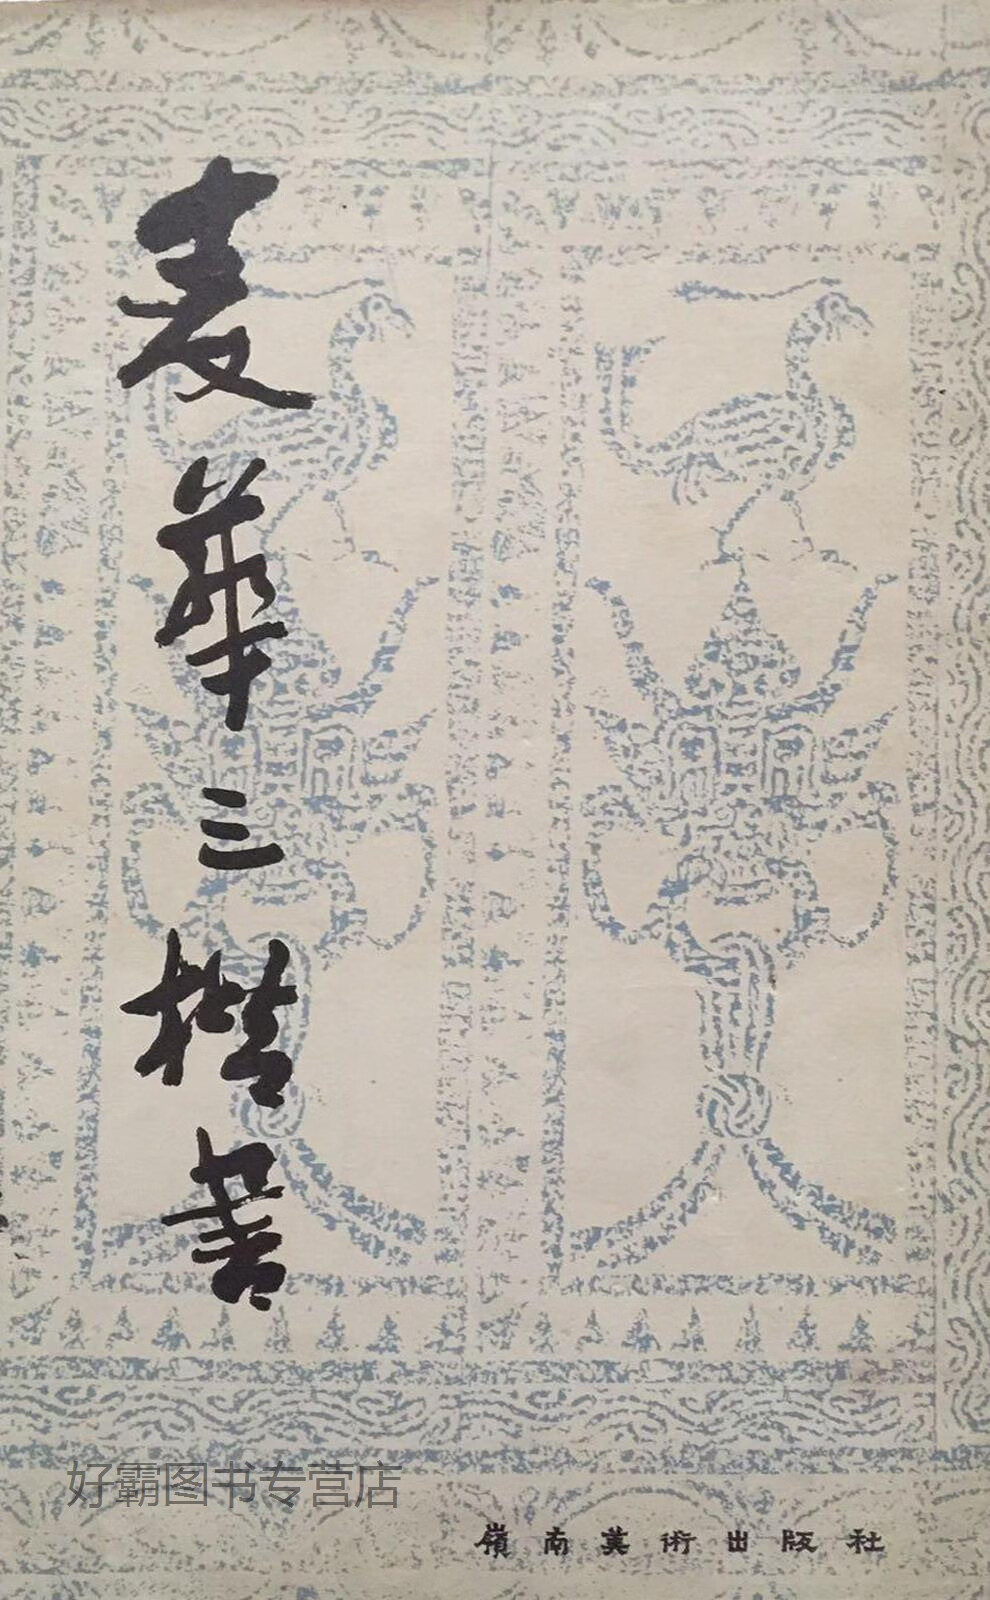 麦華三楷書
好霸图书专营店
嶺南美術出版社